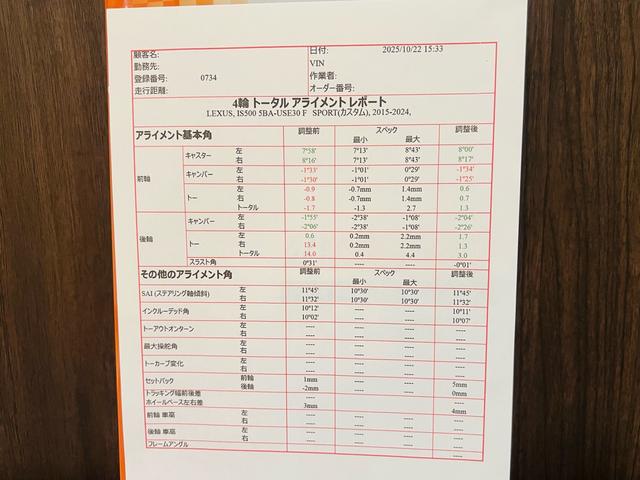 顧客名: 日付: 2025/10/22 15:33
勤務先: VIN
登録番号: 0734 作業者:
走行距離: オーダー番号:
4輪 トータル アライメント レポート
LEXUS, IS500 5BA-USE30 F SPORT(カスタム), 2015-2024,
アライメント基本角 調整前 スペック 調整後
最小 最大
前輪 キャスター 左 7°58' 7°13' 8°43' 8°00'
右 8°16' 7°13' 8°43' 8°17'
キャンバー 左 -1°33' -1°01' 0°29' -1°34'
右 -1°30' -1°01' 0°29' -1°25'
トー 左 -0.9 -0.7mm 1.4mm 0.6
右 -0.8 -0.7mm 1.4mm 0.7
トータル -1.7 -1.3 2.7 1.3
後輪 キャンバー 左 -1°55' -2°38' -1°08' -2°04'
右 -2°06' -2°38' -1°08' -2°26'
トー 左 0.6 0.2mm 2.2mm 1.7
右 13.4 0.2mm 2.2mm 1.3
トータル 14.0 0.4 4.4 3.0
スラスト角 0°31' ---- ---- -0°01'
その他のアライメント角 調整前 スペック 調整後
最小 最大
SAI (ステアリング軸傾斜) 左 11°45' 10°30' 10°30' 11°45'
右 11°32' 10°30' 10°30' 11°32'
インクルーデッド角 左 10°12' ---- ---- 10°11'
右 10°02' ---- ---- 10°07'
トーアウトオンターン 左 ---- ---- ---- ----
右 ---- ---- ---- ----
最大操舵角 左 ---- ---- ---- ----
右 ---- ---- ---- ----
トーカーブ変化 左 ---- ---- ---- ----
右 ---- ---- ---- ----
セットバック 前輪 1mm ---- ---- 5mm
後輪 -2mm ---- ---- 0mm
トラッキング幅前後差 ---- ---- ---- ----
ホイールベース左右差 3mm 4mm
前輪 車高 左 ---- ---- ---- ----
右 ---- ---- ---- ----
後輪 車高 左 ---- ---- ---- ----
右 ---- ---- ---- ----
フレームアングル ---- ---- ---- ----